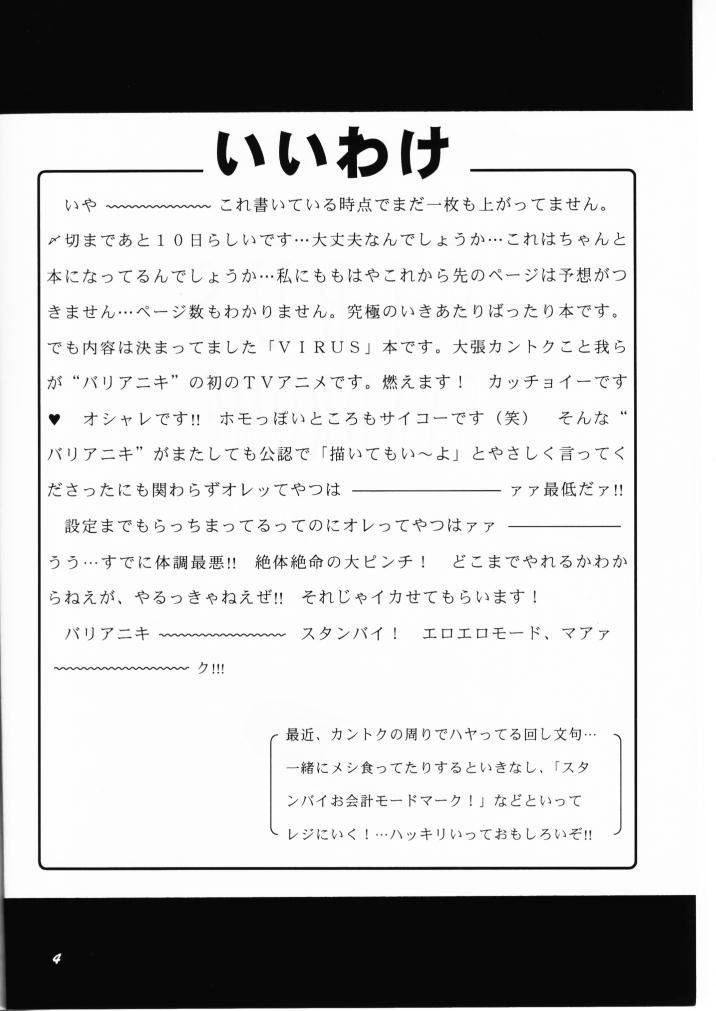 いいわけ
いや〜〜〜〜〜〜〜これ書いている時点でまだ一枚も上がってません。
〆切まであと１０日らしいです…大丈夫なんでしょうか…これはちゃんと
本になってるんでしょうか…私にももはやこれから先のページは予想がつ
きません…ページ数もわかりません。究極のいきあたりばったり本です。
でも内容は決まってました「ＶＩＲＵＳ」本です。大張カントクこと我ら
が“バリアニキ”の初のＴＶアニメです。燃えます！　カッチョイーです
♥　オシャレです!!　ホモっぽいところもサイコーです（笑）　そんな“
バリアニキ”がまたしても公認で「描いてもい〜よ」とやさしく言ってく
ださったにも関わらずオレッてやつは――――――――ァァ最低だァ!!
設定までもらっちまってるってのにオレってやつはァァ――――――
うう…すでに体調最悪!!　絶体絶命の大ピンチ！　どこまでやれるかわか
らねえが、やるっきゃねえぜ!!　それじゃイカせてもらいます！
バリアニキ〜〜〜〜〜〜〜〜　スタンバイ！　エロエロモード、マアァ
〜〜〜〜〜〜〜〜ク!!!
最近、カントクの周りでハヤってる回し文句…
一緒にメシ食ってたりするといきなし、「スタ
ンバイお会計モードマーク！」などといって
レジにいく！…ハッキリいっておもしろいぞ!!
4